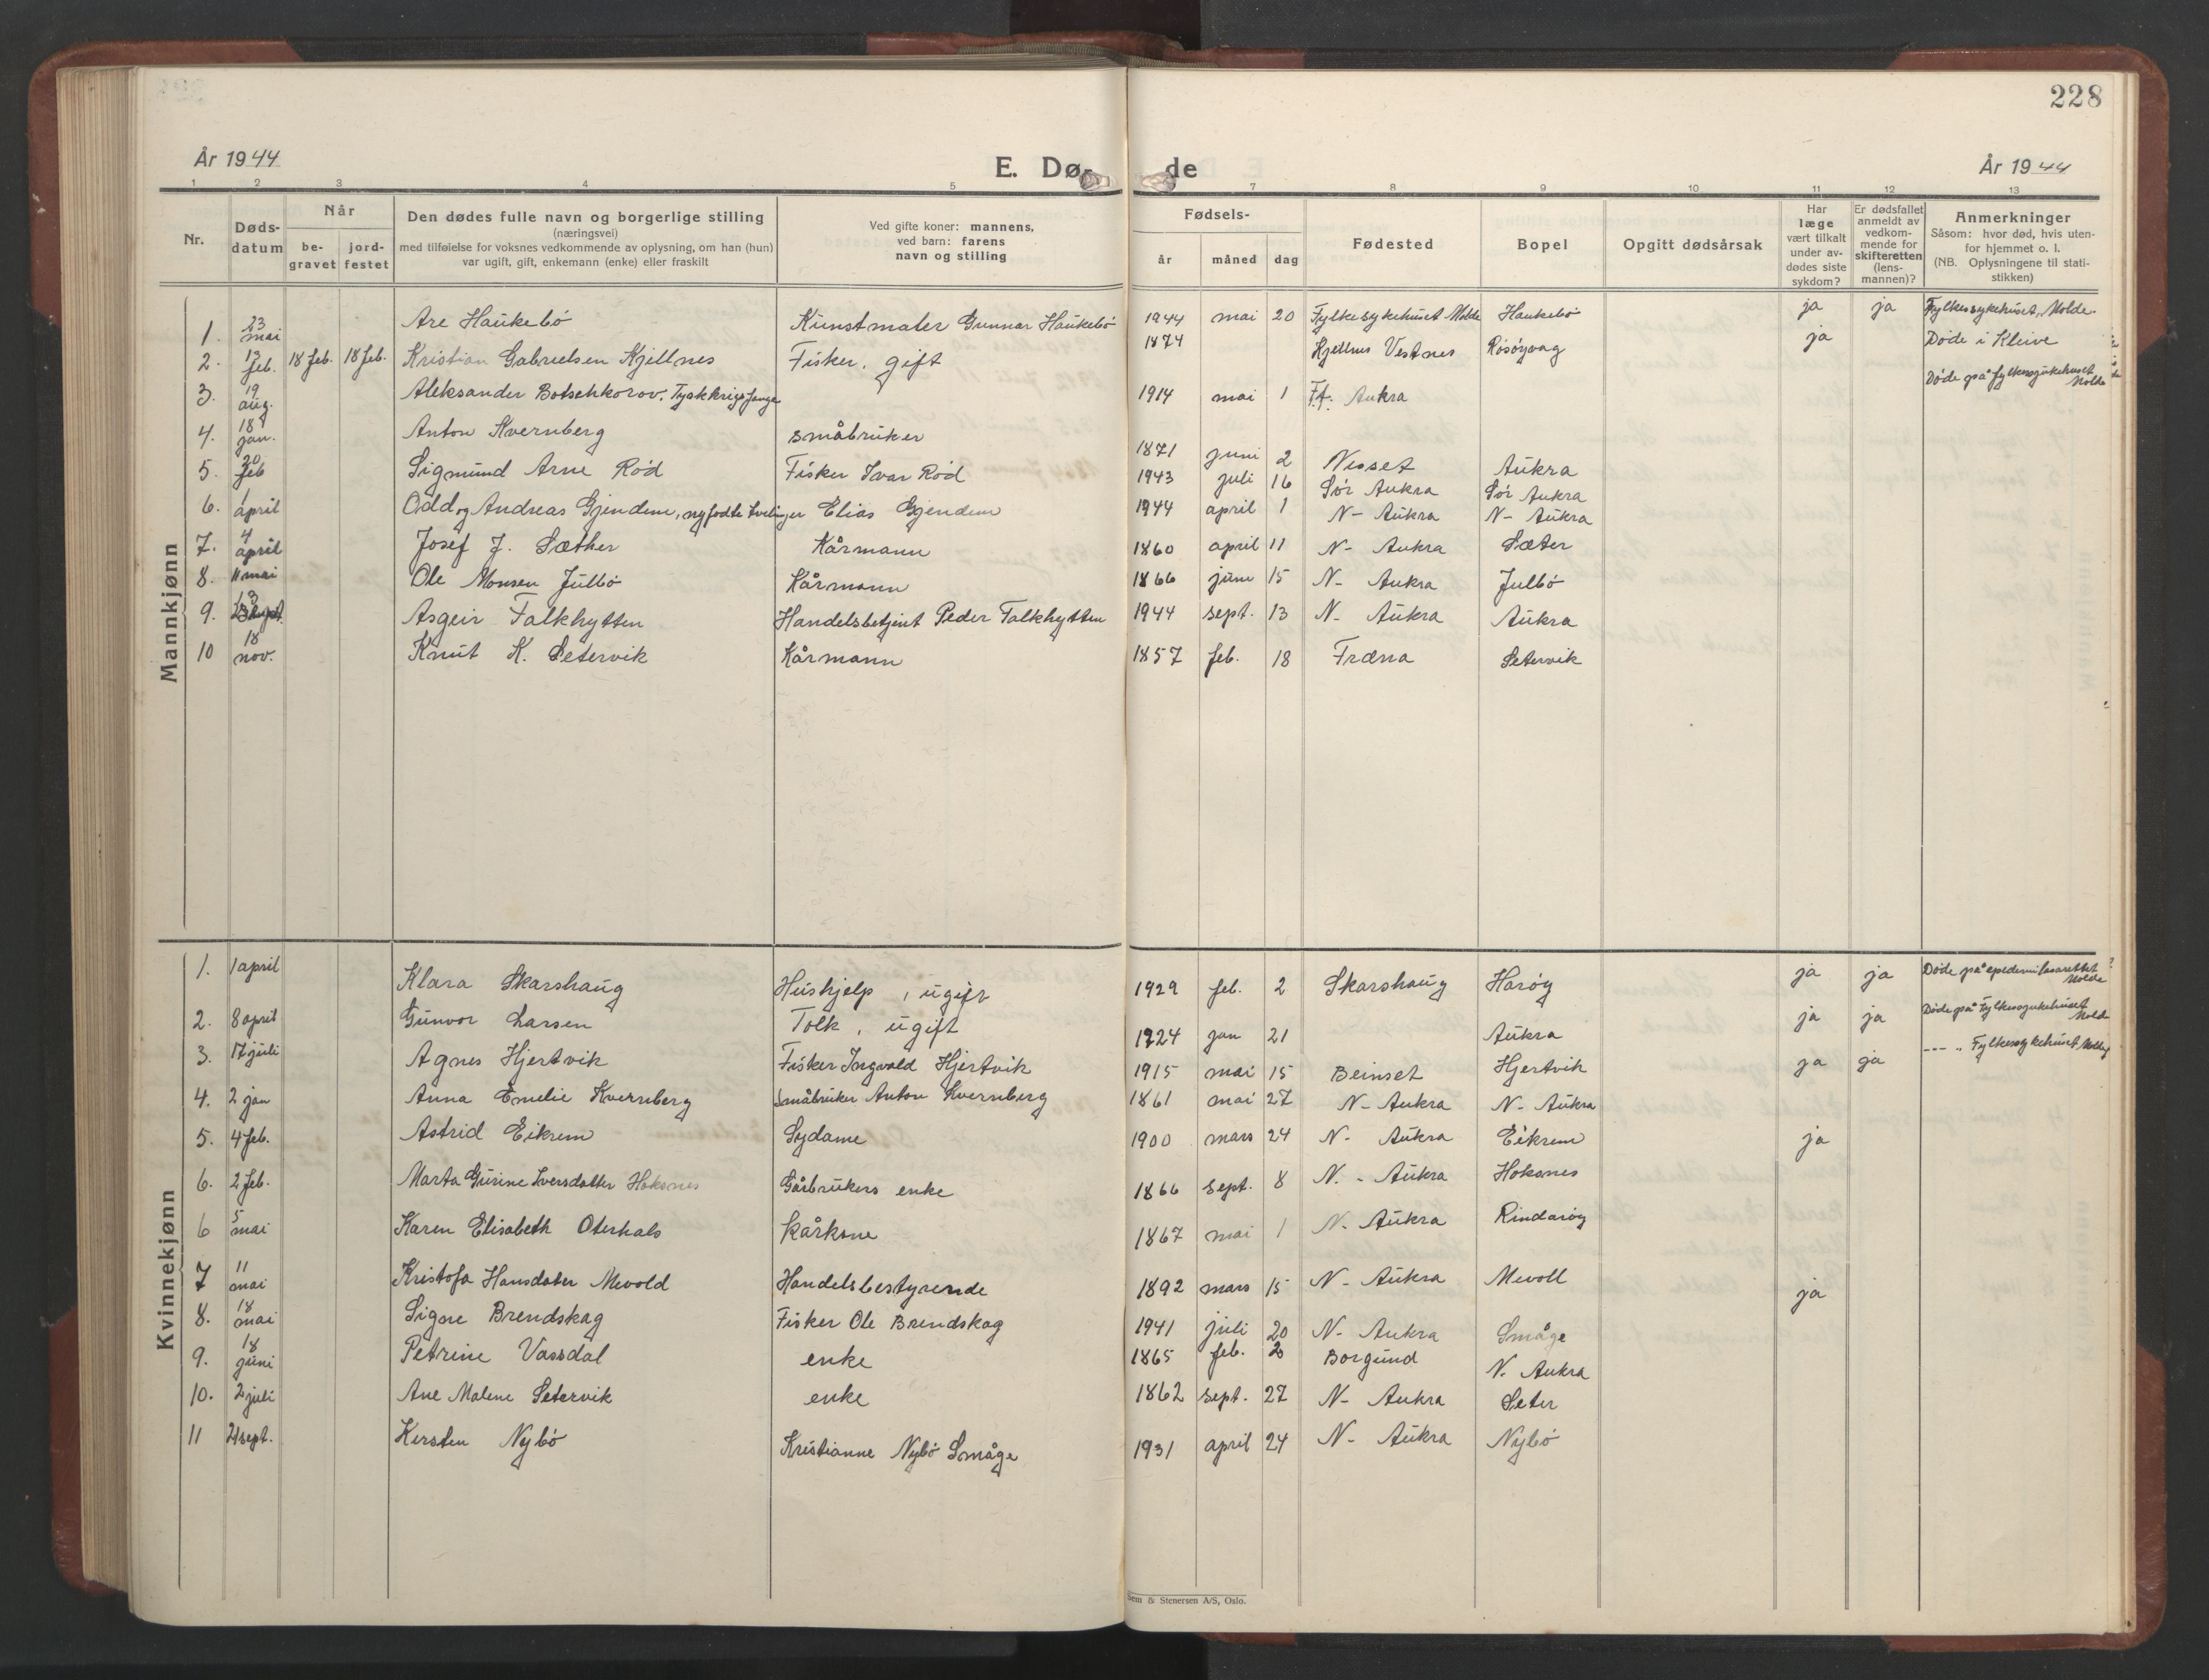 228
År 1944 E. Dø- de År 1944
1 2 3 4 5 7 8 9 10 11 12 13
Nr.
Døds-
datum
Når
be-
gravet
jord-
festet
Den dødes fulle navn og borgerlige stilling
(næringsvei)
med tilføielse for voksnes vedkommende av oplysning, om han (hun)
var ugift, gift, enkemann (enke) eller fraskilt
Ved gifte koner: mannens,
ved barn: farens
navn og stilling
Fødsels-
år måned dag
Fødested
Bopel
Opgitt dødsårsak
Har
læge
vært tilkalt
under av-
dødes siste
sykdom?
Er dødsfallet
anmeldt av
vedkom-
mende for
skifteretten
(lens-
mannen)?
Anmerkninger
Såsom: hvor død, hvis uten-
for hjemmet o. l.
(NB. Oplysningene til stati-
stikken)
Mannkjønn
1. 23 mai Are Haukebø Kunstmaler Gunnar Haukebø 1944 mai 20 Fylkesykehuset Molde Haukebø ja ja Fylkessykehuset, Molde.
2. 13 feb. 18 feb. 18 feb. Kristian Gabrielsen Kjellnes Fisker, gift 1874 Kjellnes Vestnes Røsøyvag ja Døde i Kleive
3. 19 aug. Aleksander Botschkorov. Tysk krigsfange 1914 mai 1 Aukra Døde på fylkessykehuset Molde
4. 18 jan. Anton Kvernberg småbruker 1871 juni 2 Nesset Aukra
5. 20 feb Sigmund Arne Rød Fisker Ivar Rød 1943 juli 16 Sør Aukra Sør Aukra
6. 1 april Odd og Andreas Gjendem, nyfødte tvilinger Elias Gjendem 1944 april 1 N- Aukra N- Aukra
7. 4 april Josef J. Sæther Kårmann 1860 april 11 N- Aukra Sæter
8. 11 mai Ole Monsen Julbø Kårmann 1866 juni 15 N- Aukra Julbø
9. 13 sept. Asgeir Falkhytten Handelsbetjent Peder Falkhytten 1944 sept. 13 N- Aukra Aukra
10 18 nov. Knut K. Setervik Kårmann 1857 feb. 18 Fræna Setervik
Kvinnekjønn
1. 1 april Klara Skarshaug Hushjelp, ugift 1929 feb. 2 Skarshaug Harøy ja ja Døde på epidemilasarettet Molde
2. 8 april Gunvor Larsen Tolk, ugift 1924 jan 21 Aukra ja ja Døde på Fylkessykehuset Molde
3. 17 juli Agnes Hjertvik Fisker Ingvald Hjertvik 1915 mai 15 Beinset Hjertvik ja ja --- „ Fylkessykehuset Molde
4. 2 jan Anna Emelie Kvernberg Småbruker Anton Kvernberg 1861 mai 27 N- Aukra N- Aukra
5. 4 feb. Astrid Eikrem Sydame 1900 mars 24 N- Aukra Eikrem ja
6. 2 feb. Marta Gurine Iversdatter Hoksnes Gårbrukers enke 1866 sept. 8 N. - Aukra Hoksnes
6 5 mai Karen Elisabeth Oterhals kårkone 1867 mai 1 N. Aukra Rindarøy
7 11 mai Kristofa Hansdater Mevold Handelsbestyrende 1892 mars 15 N- Aukra Mevoll ja
8. 18 mai Signe Brendskag Fisker Ole Brendskag 1941 juli 20 N- Aukra Småge
9. 18 juni Petrine Vassdal enke 1865 feb. 2 Borgund N. Aukra
10. 2 juli Ane Malene Setervik enke 1862 sept. 27 N- Aukra Seter
11 21 sept. Kersten Nybø Kristianne Nybø Småge 1931 april 24 N- Aukra Nybø
Sem & Stenersen A/S, Oslo.